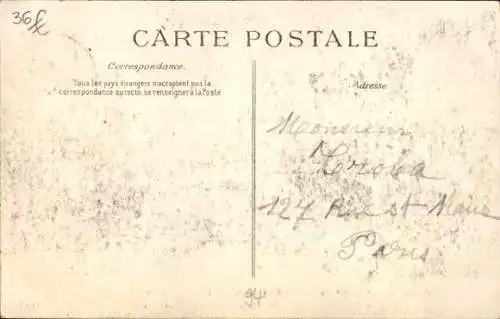 36f
CARTE POSTALE
Correspondance.
Tous les pays étrangers n'acceptent pas la
correspondance au recto, se renseigner à la Poste
Adresse
Monsieur
Troba
127 Rue St Maur
Paris
94